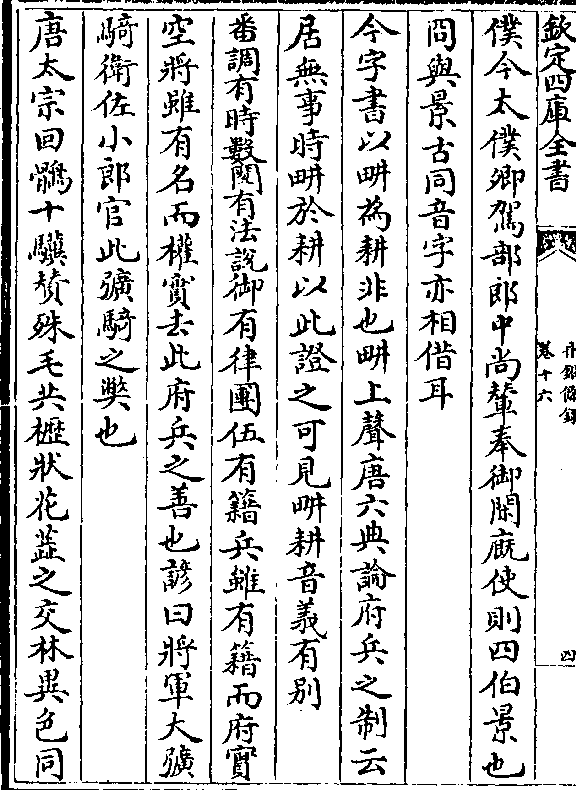 欽定四庫全書
丹鉛餘錄
卷十六
四
僕今太僕卿駕部郎中尚輦奉御閑廐使則四伯景也
冏與景古同音字亦相借耳
今字書以畊為耕非也畊上聲唐六典論府兵之制云
居無事時畊於耕以此證之可見畊耕音義有别
番調有時數閱有法說御有律團伍有籍兵雖有籍而府實
空將雖有名而權實去此府兵之善也諺曰將軍大彍
騎衛佐小郎官此彍騎之獘也
唐太宗回鶻十驥贊殊毛共櫪狀花蘂之交林異色同